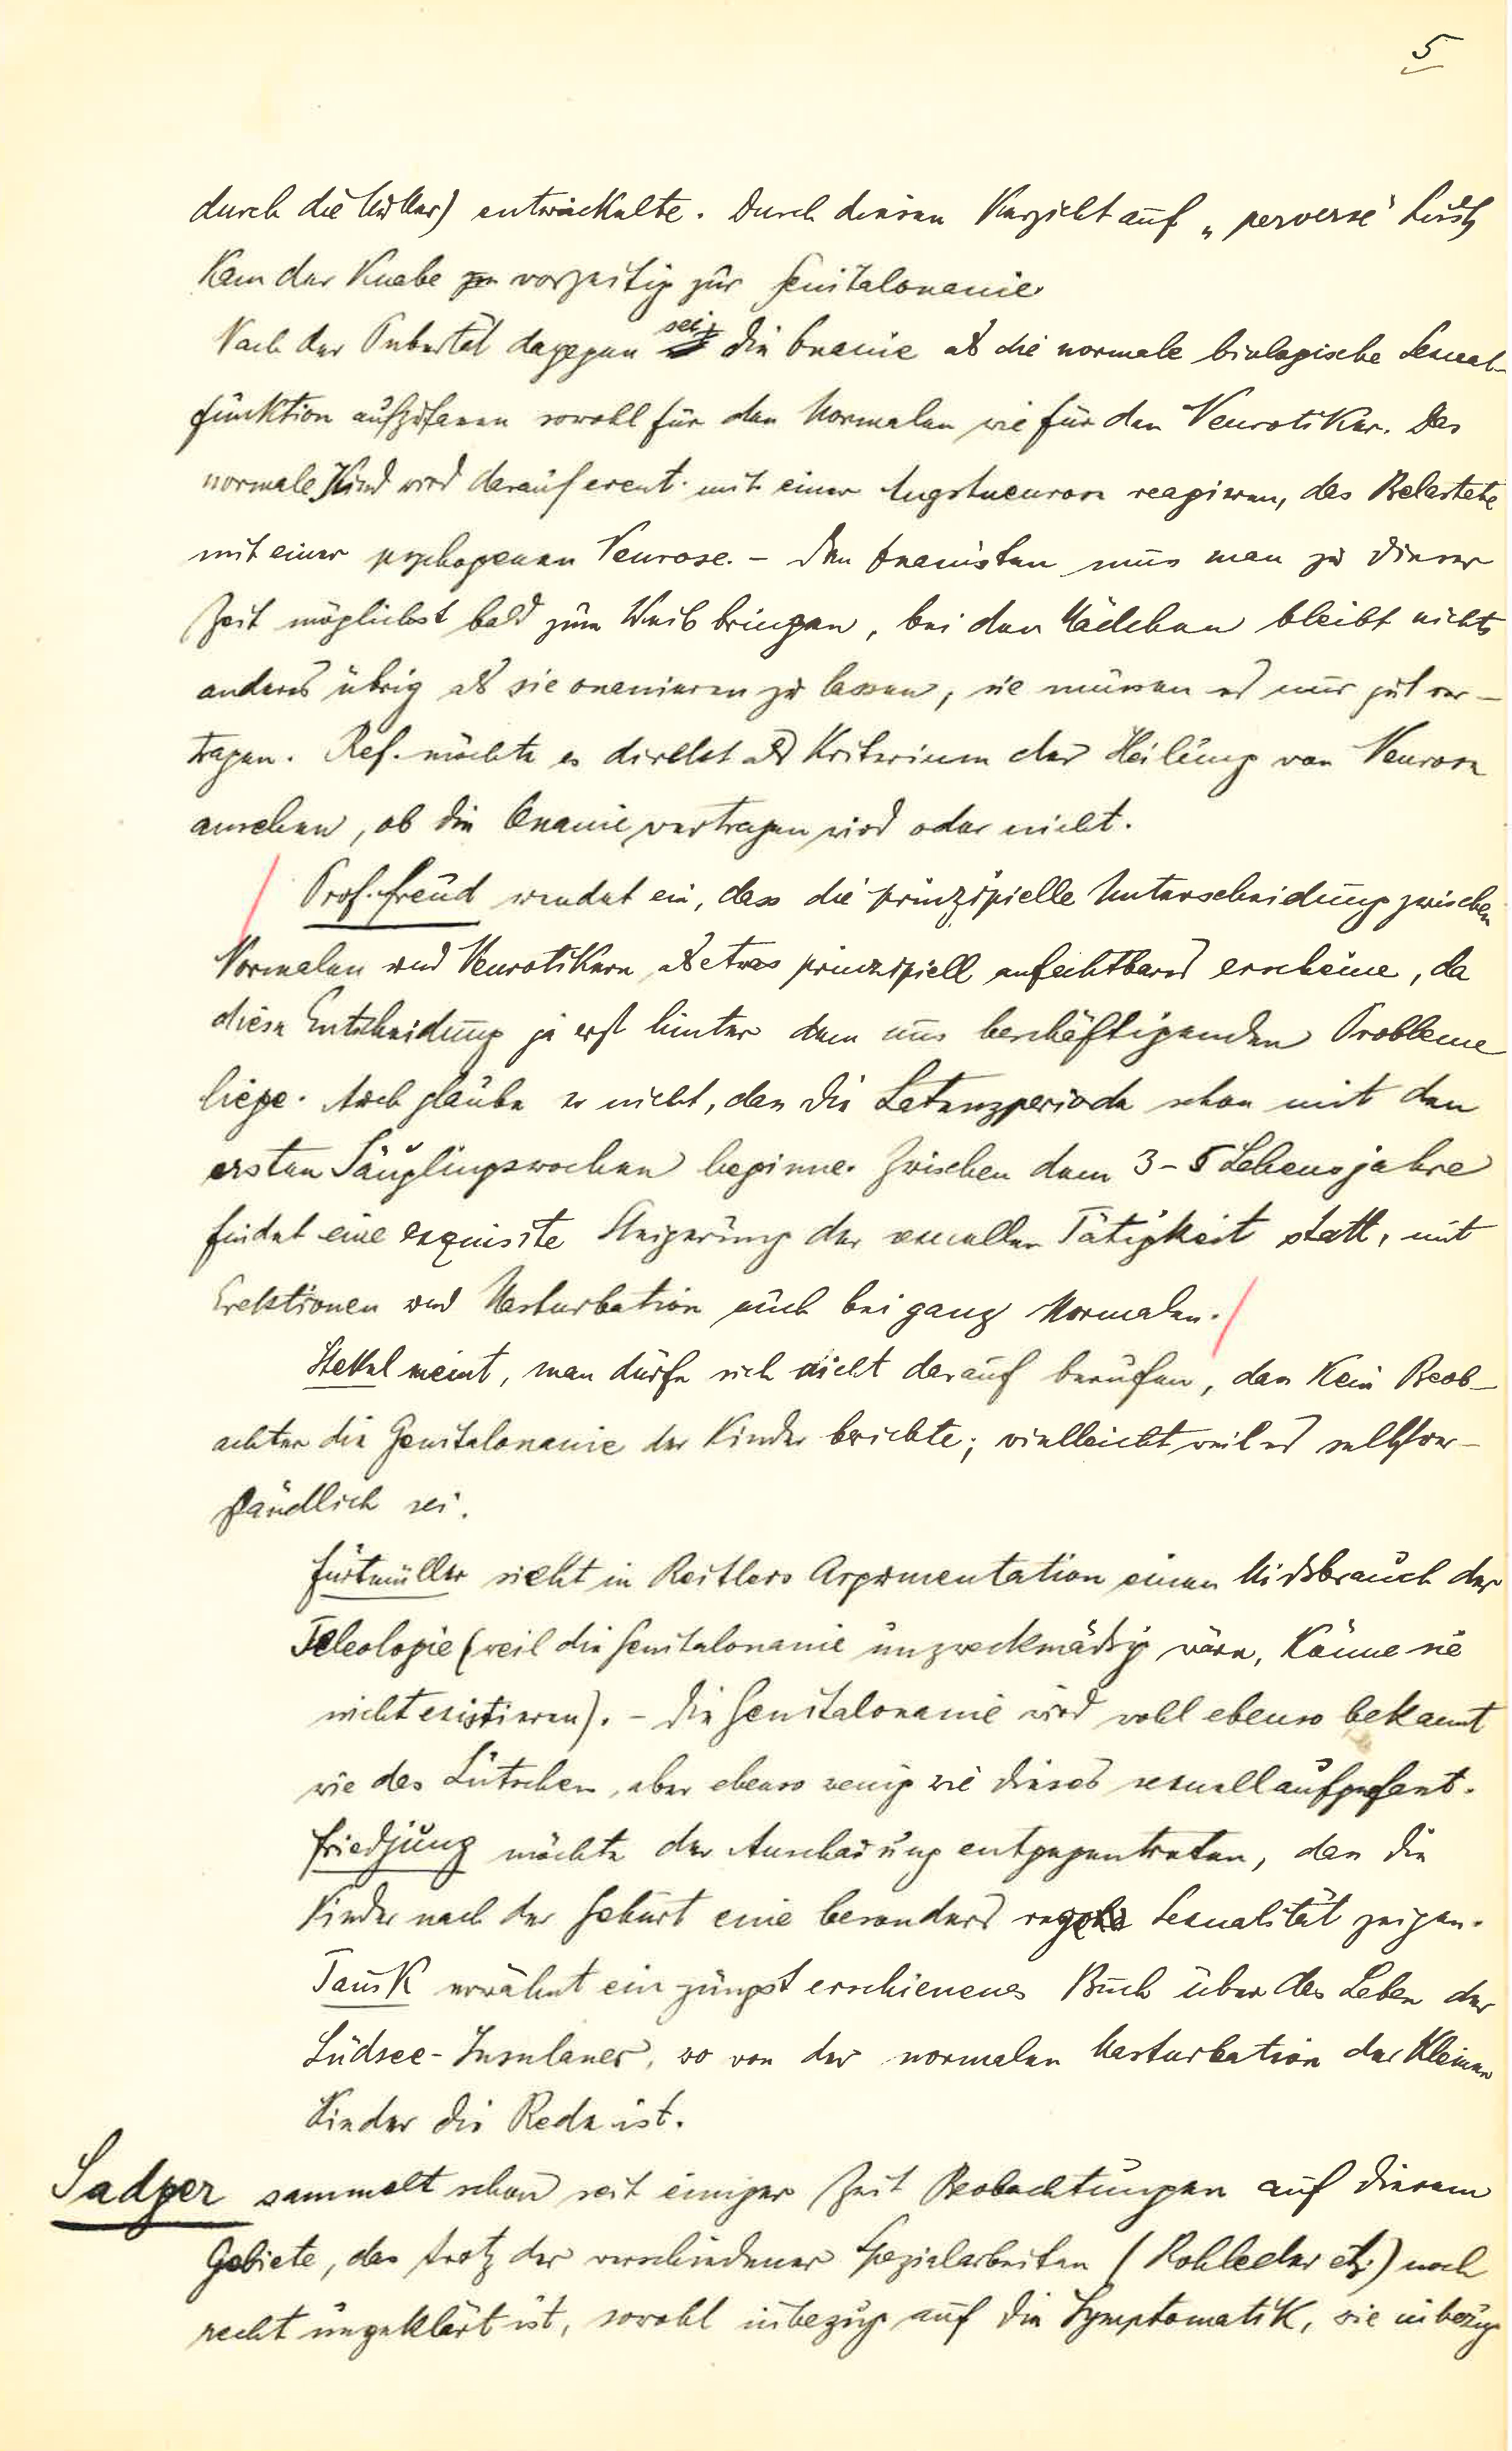 5
durch die Mutter) entwickelte. Durch diesen Verzicht auf „perverse“ Lust
kam der Knabe vorzeitig zur Genitalonanie.
Nach der Pubertät dagegen sei die Onanie als die normale biologische Sexual-
funktion aufzufassen sowohl für den Normalen wie für den Neurotiker. Das
normale Kind wird darauf event. mit einer Angstneurose reagieren, das Belastete
mit einer psychogenen Neurose. – Den Onanisten muss man zu dieser
Zeit möglichst bald zum Weib bringen, bei den Mädchen bleibt nichts
anderes übrig als sie onanieren zu lassen, sie müssen es nur gut ver-
tragen. Ref. möchte es direkt als Kriterium der Heilung von Neurose
ansehen, ob die Onanie vertragen wird oder nicht.
Prof. Freud wendet ein, dass die prinzipielle Unterscheidung zwischen
Normalen und Neurotikern als etwas prinzipiell anfechtbares erscheine, da
diese Entscheidung ja erst hinter dem uns beschäftigenden Probleme
liege. Auch glaube er nicht, dass die Latenzperiode schon mit den
ersten Säuglingswochen beginne. Zwischen dem 3–5 Lebensjahre
findet eine exquisite Steigerung der sexuellen Tätigkeit statt, mit
Erektionen und Masturbation auch bei ganz Normalen.
Stekel meint, man dürfe sich nicht darauf berufen, dass kein Beob-
achter die Genitalonanie der Kinder berichte; vielleicht weil es selbstver-
ständlich sei.
Furtmüller sieht in Reitlers Argumentation einen Missbrauch der
Teleologie (weil die Genitalonanie unzweckmässig wäre, könne sie
nicht existieren). – Die Genitalonanie wird wohl ebenso bekannt
wie das Lutschen, aber ebenso wenig wie dieses sexuell aufgefasst.
Friedjung möchte der Anschauung entgegentreten, dass die
Kinder nach der Geburt eine besonders rege Sexualität zeigen.
Tausk erwähnt ein jüngst erschienenes Buch über das Leben der
Südsee-Insulaner, wo von der normalen Masturbation der kleinen
Kinder die Rede ist.
Sadger sammelt schon seit einiger Zeit Beobachtungen auf diesem
Gebiete, das trotz der verschiedenen Spezialarbeiten (Rohleder etz.) noch
recht ungeklärt ist, sowohl inbezug auf die Symptomatik, wie inbezug